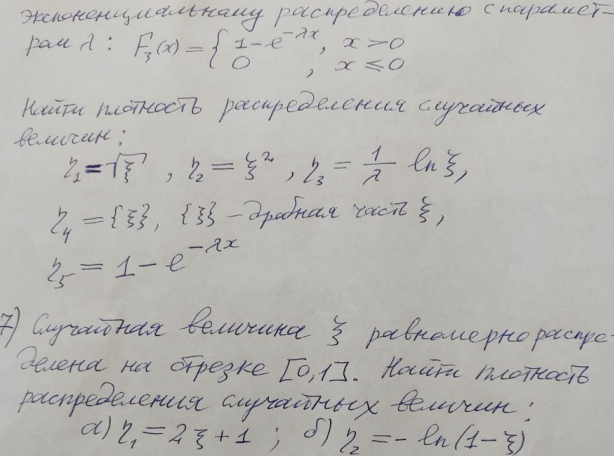 экспоненциальному распределению с парамет-
ром λ : F_ξ(x) = { 1 - e^{-λx}, x > 0
0 , x ≤ 0
Найти плотность распределения случайных
величин:
η₁ = √ξ , η₂ = ξ² , η₃ = 1/λ ln ξ,
η₄ = {ξ}, {ξ} - дробная часть ξ,
η₅ = 1 - e^{-λx}
7) Случайная величина ξ равномерно распре-
делена на отрезке [0,1]. Найти плотность
распределения случайных величин:
а) η₁ = 2ξ + 1 ; б) η₂ = - ln(1 - ξ)